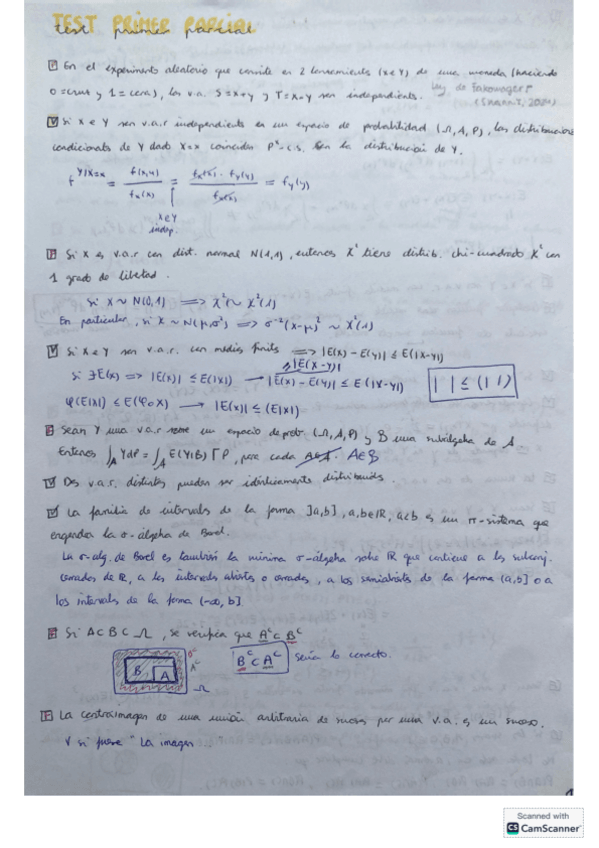 TEST PRIMER PARCIAL
test primer parcial
F En el experimento aleatorio que consiste en 2 lanzamientos (X e Y) de una moneda (haciendo
0=cruz y 1=cara), las v.a. S=X+Y y T=X-Y son independientes.
V Si X e Y son v.a.r independientes en un espacio de probabilidad (Ω,A,P), las distribuciones
condicionales de Y dado X=x coinciden P^X-c.s. con la distribución de Y.
f^{Y|X=x} = f(x,y) / f_X(x) = f_X(x) · f_Y(y) / f_X(x) = f_Y(y)
X e Y
indep.
F Si X es v.a.r con dist. normal N(1,1), entonces X² tiene distrib. chi-cuadrado X² con
1 grado de libertad.
Si X ~ N(0,1) ⟹ X² ~ X²(1)
En particular, si X ~ N(μ,σ²) ⟹ σ⁻²(X-μ)² ~ X²(1)
V Si X e Y son v.a.r. con medias finitas ⟹ |E(X)-E(Y)| ≤ E(|X-Y|)
=|E(X-Y)|
Si ∃E(X) ⟹ |E(X)| ≤ E(|X|) → |E(X)-E(Y)| ≤ E(|X-Y|)
| | ≤ (| |)
φ(E(X)) ≤ E(φ∘X) → |E(X)| ≤ (E|X|)
Sean Y una v.a.r sobre un espacio de prob. (Ω,A,P) y B una subálgebra de A.
Entonces ∫_A YdP = ∫_A E(Y|B) dP, para cada A∈A. A∈B
V Dos v.a.r. distintas pueden ser idénticamente distribuidas.
V La familia de intervalos de la forma ]a,b], a,b∈ℝ, a<b es un π-sistema que
engendra la σ-álgebra de Borel.
La σ-alg. de Borel es también la mínima σ-álgebra sobre ℝ que contiene a los subconj.
cerrados de ℝ, a los intervalos abiertos o cerrados, a los semiabiertos de la forma (a,b] o a
los intervalos de la forma (-∞,b]
F Si A⊂B⊂Ω, se verifica que A^c ⊂ B^c
B A B^c A^c Ω
B^c ⊂ A^c sería lo correcto.
F La contraimagen de una unión arbitraria de sucesos por una v.a. es un suceso.
V si fuese "La imagen "
Scanned with
CS CamScanner